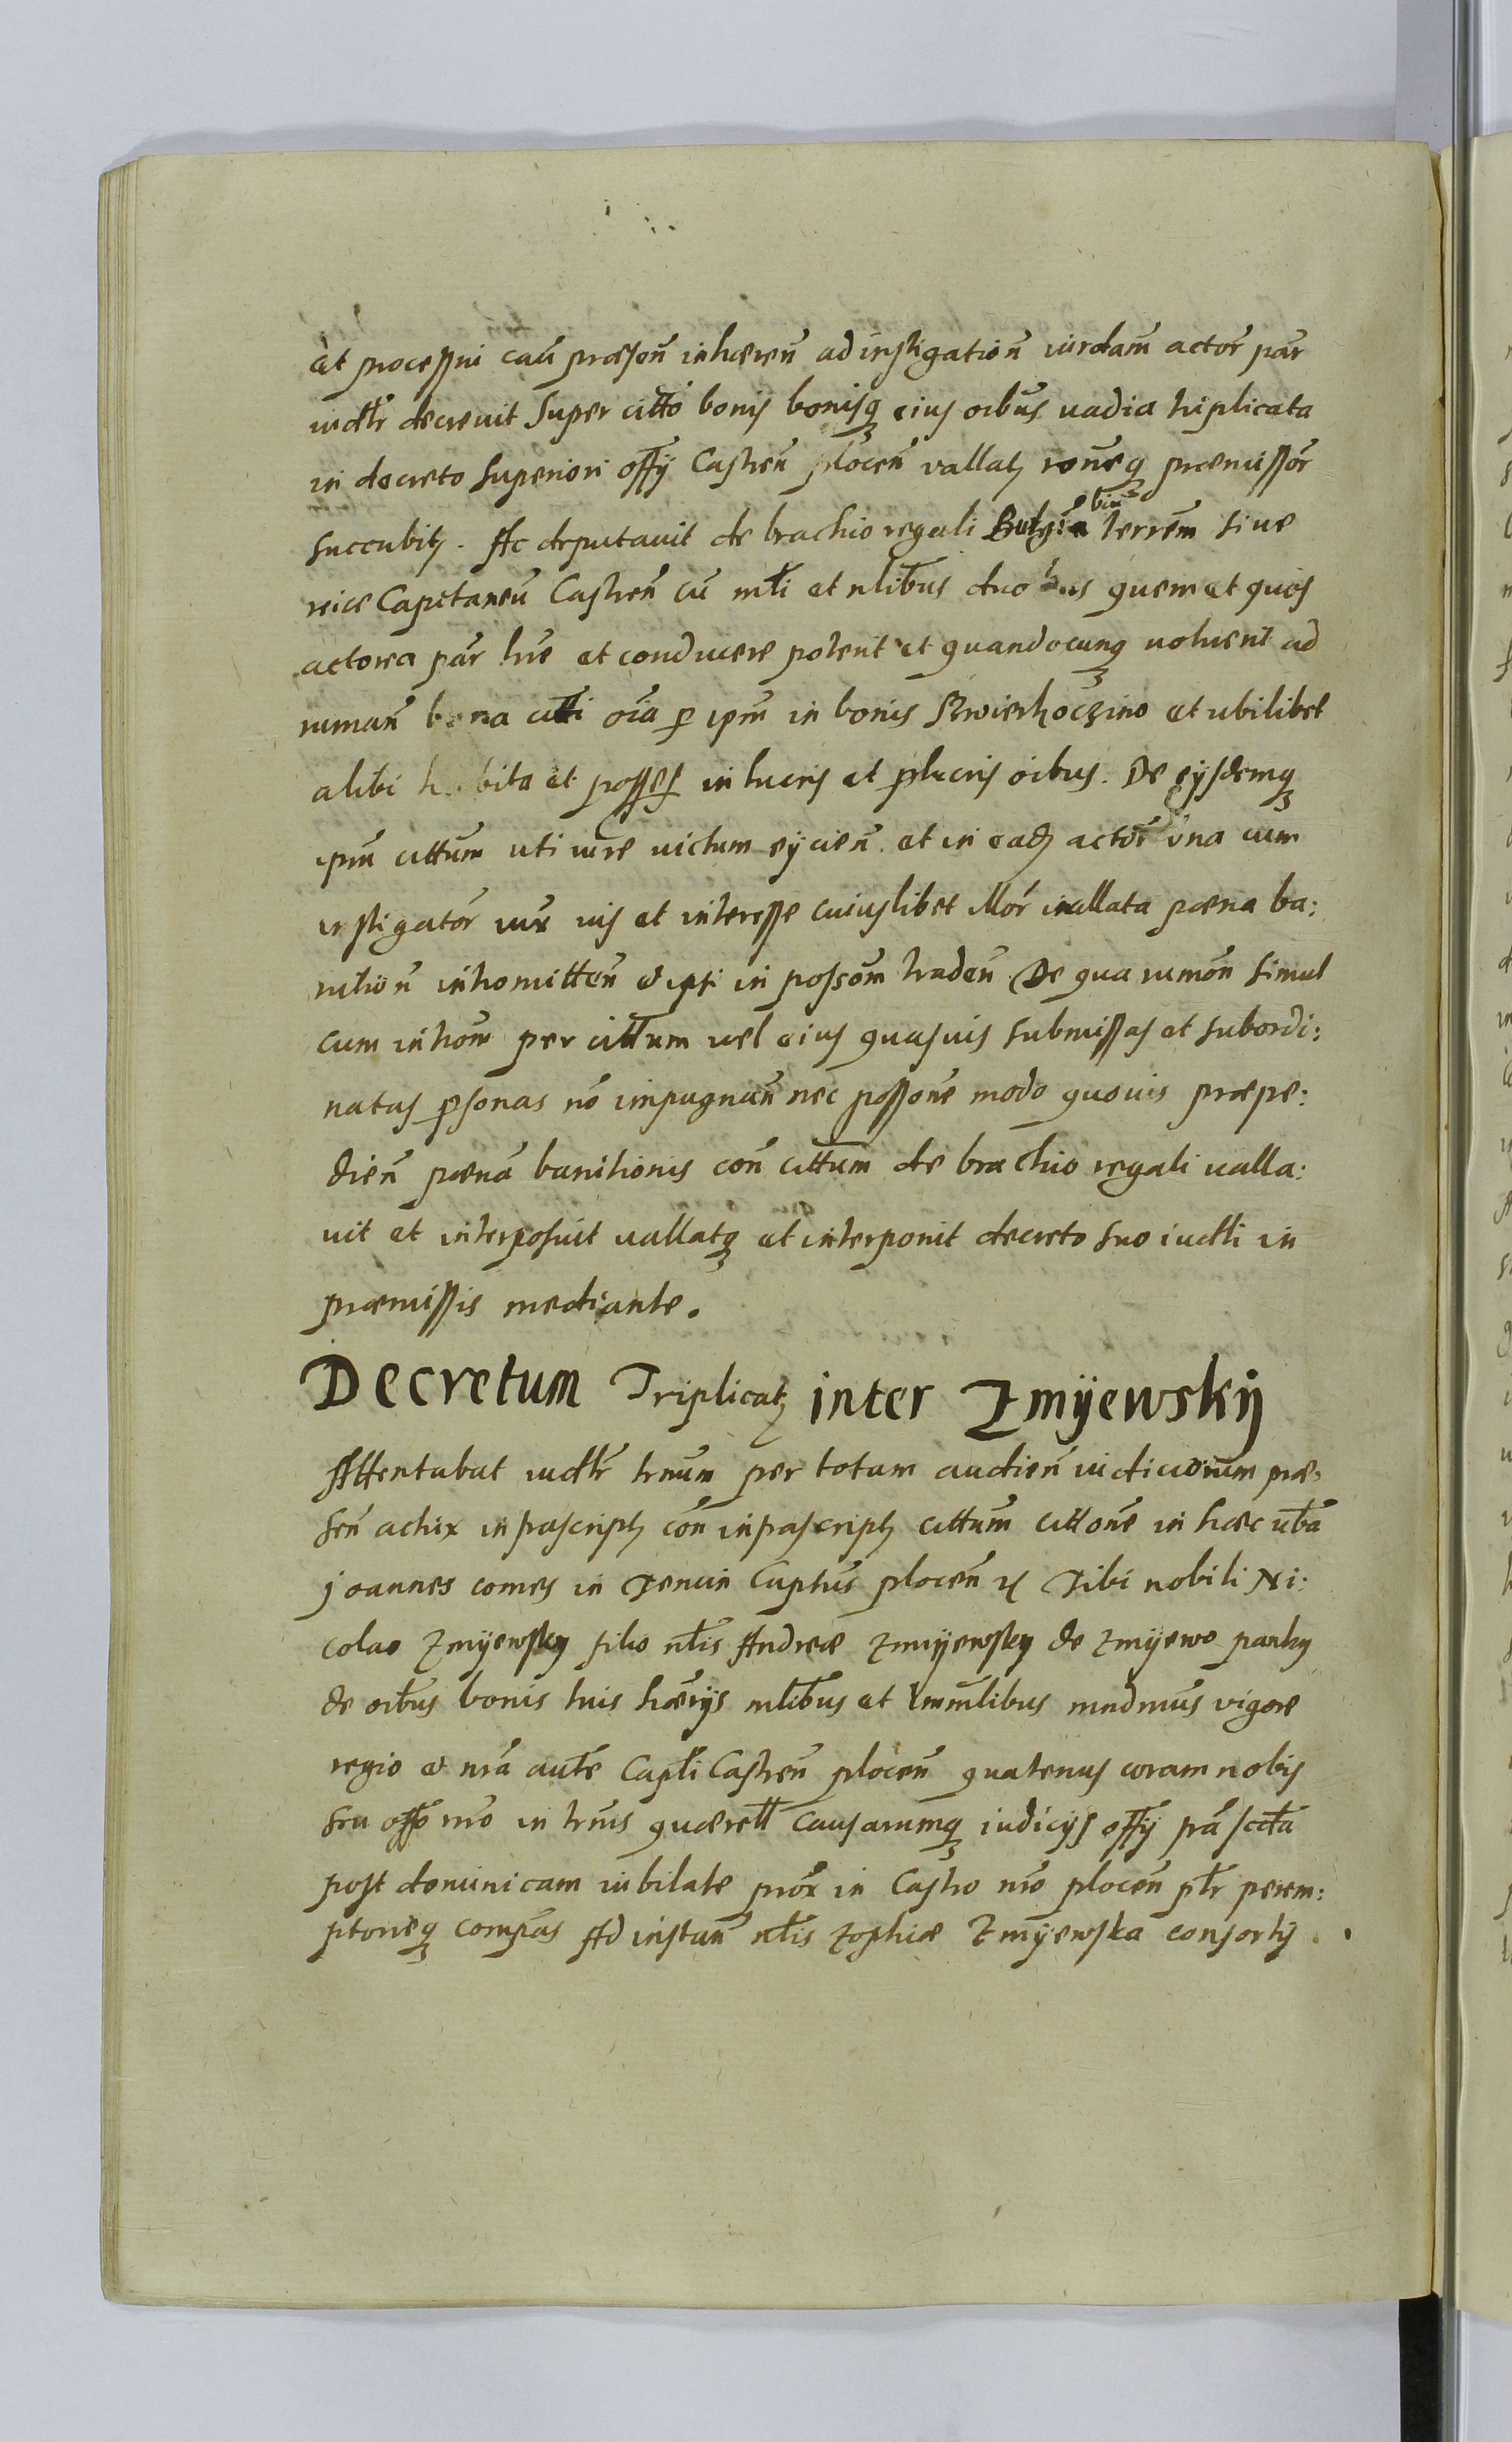 et processui cau͞ præsen͞ inhæren͞ ad instigation͞ iurdam͞ actor͞ par͞
iudlr͞ decreuit Super citt͞o bonis bonisq₃ eius oibus͞ uadia triplicata
in decreto superiori offy Castren͞ plocen͞ vallatꝫ præmissor͞
succubitꝫ. Ac deputauit de brachio regali terrem͞ siue
vice Capitaneu͞ Castren͞ cu͞ mtl͞i et nlib͞us duobus quem et quos
actorea par͞ hr͞e et conducere poterit et quandocunq₃ uoluerit ad
ruman͞ bona citt͞i oi͞a ꝑ ipm͞ in bonis Srwierkoczino et ubilibet
alibi habita et posses in lucris et plucris oibus. De eysdemq₃
ipm͞ cittum͞ uti iure uictum eycien͞ et in eadꝫ actor͞ una cum
instigator͞ iux͞ ius et interesse cuiuslibet illor͞ inallata pæna ba:
nition͞ intromitten͞ & ipsi in possom͞ traden͞ De qua rumon͞ simul
cum introm͞ per citt͞um vel eius quasuis submissas et subordi:
natas ꝑsonas no͞ impugnan͞ nec posson͞e modo quouis præpe:
dien͞ pæna͞ banitionis con͞ citt͞um de brachio regali ualla:
uit et interposuit uallatq₃ et interponit decreto suo iudl͞i in
præmissis mediante.
Decretum Triplicatꝫ inter Zmÿewskÿ
Attentabat iudlr͞ trnu͞m per totam audien͞ iudiciorum præ:
sen͞ actrix infrascriptꝫ con͞ infrascriptꝫ cittum͞ citton͞e in hæc ub͞a
joannes comes in Tencin Captus͞ plocen͞ ꝛc Tibi nobili Ni:
colao Zmÿewsky filio nl͞is Andreæ Zmÿewsky de Zmÿewo parky
de oibus͞ bonis tuis hæry͞s mlib͞us et Immlib͞us mndmus͞ vigore
regio & nr͞a aut͞e Captl͞i Castren͞ plocen͞ quatenus coram nobis
seu off͞o nr͞o in trnis͞ quærell͞ causarumq₃ iudicÿs offy pr͞a
post dominicam iubilate pro͞x in Castro nr͞o plocen͞ ptr͞ perem:
ptorieq₃ comp͞as Ad instan͞ nl͞is Zophiæ Zmÿewska consortÿ